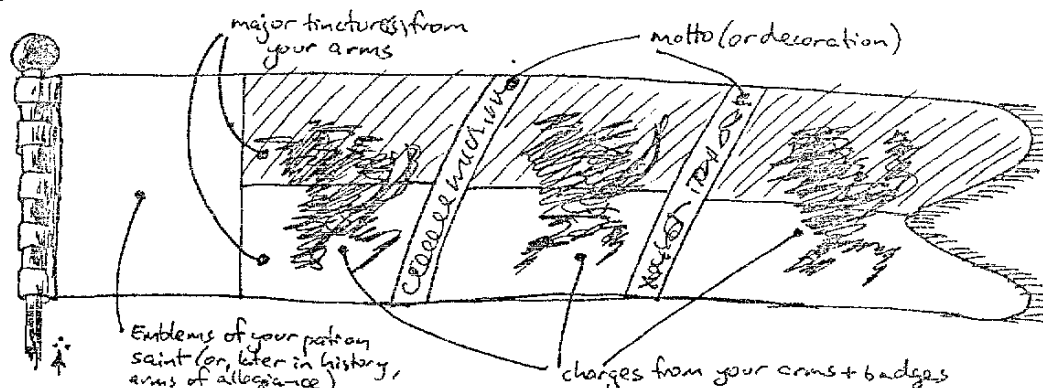 major tincture(s) from
your arms
motto (or decoration)
Emblems of your patron
saint (or, later in history,
arms of allegiance)
charges from your arms + badges